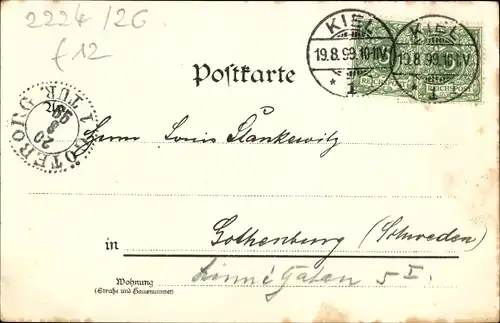 2224/26
f 12
KIEL
19.8.99.10-11V.
* 1
KIEL
19.8.99.10-11V.
* 1
REICHSPOST
REICHSPOST
Postkarte
GÖTEBORG 1 TUR
20
8
99
Herrn Louis Plankewitz
in Gothenburg (Schweden)
Wohnung
(Straße und Hausnummer)
Linné Gatan 5 I.